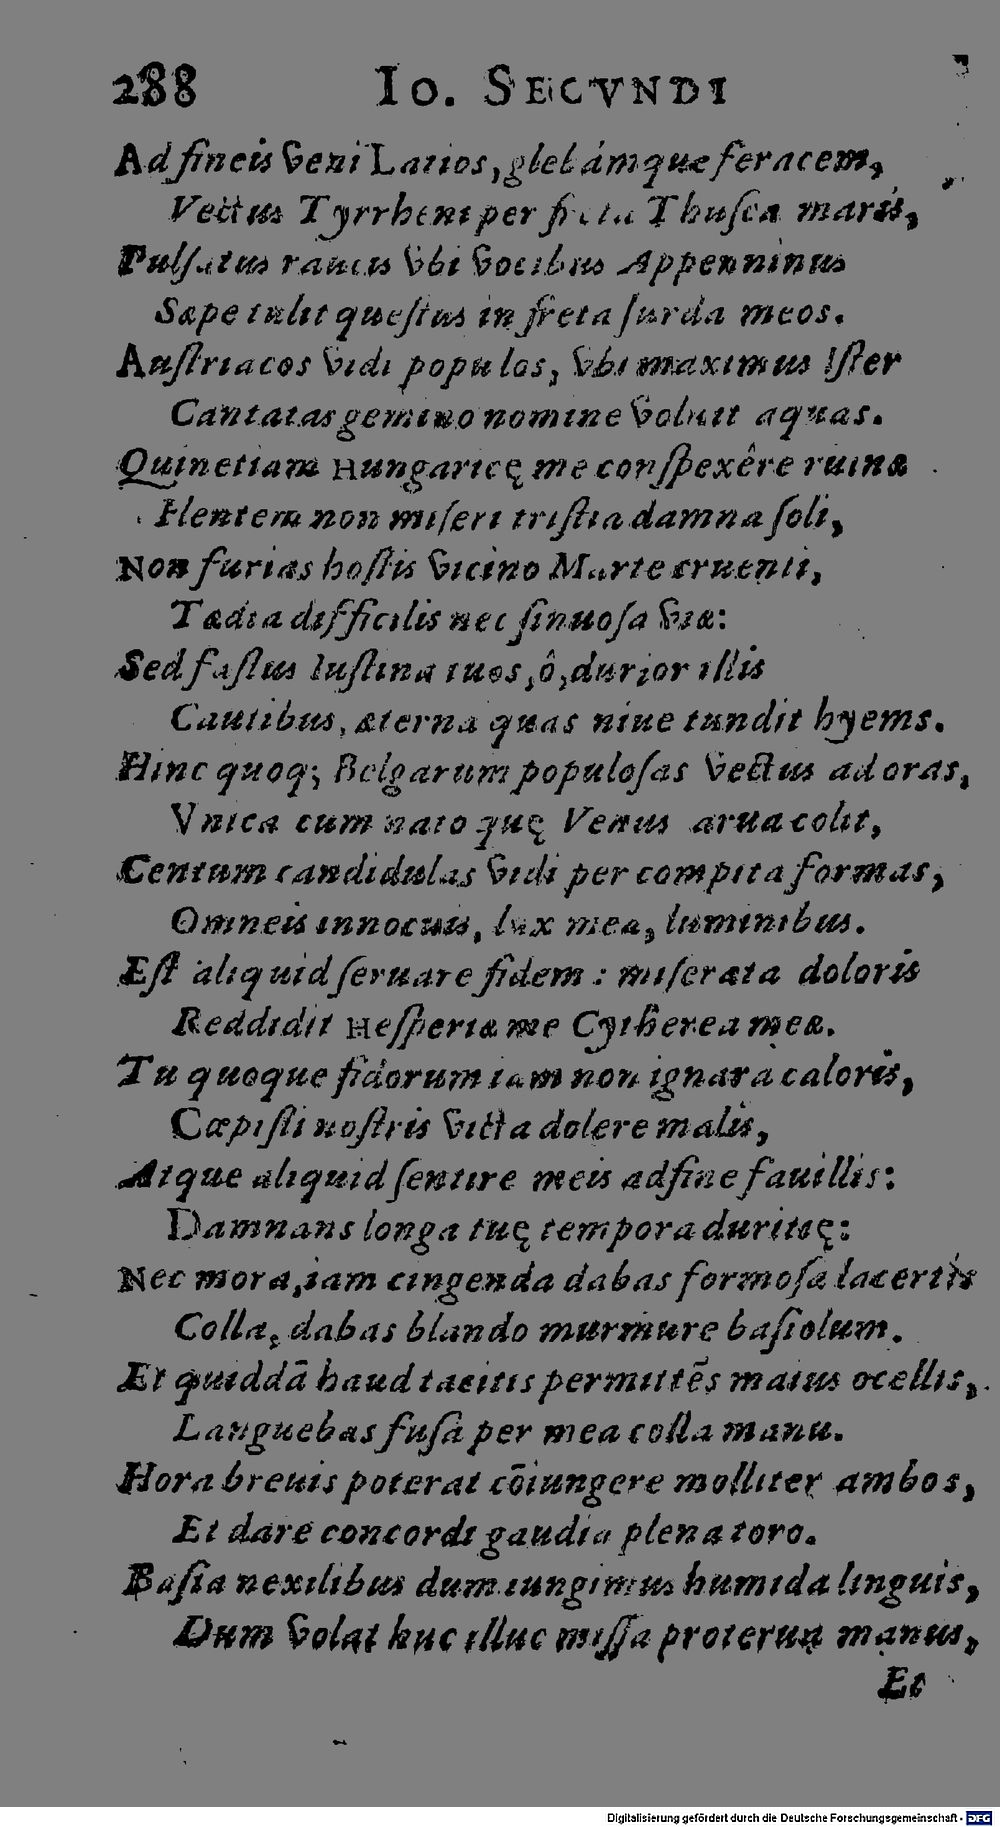 288 IO. SECVNDI
Ad fineis veni Latios, glebámque feracem,
Vectus Tyrrheni per freta Thuſca maris,
Pulſatus raucis vbi vocibus Appenninus
Sæpe tulit queſtus in freta ſurda meos.
Auſtriacos vidi populos, vbi maximus Iſter
Cantatas gemino nomine voluit aquas.
Quinetiam Hungaricę me conſpexêre ruinæ
Flentem non miſeri triſtia damna ſoli,
Non furias hoſtis vicino Marte cruenti,
Tædia difficilis nec ſinuoſa viæ:
Sed faſtus Iuſtina tuos, ô, durior illis
Cautibus, æterna quas niue tundit hyems.
Hinc quoq; Belgarum populoſas vectus ad oras,
Vnica cum nato quę Venus arua colit,
Centum candidulas vidi per compita formas,
Omneis innocuis, lux mea, luminibus.
Eſt aliquid ſeruare fidem: miſerata doloris
Reddidit Heſperiæ me Cytherea meæ.
Tu quoque fidorum iam non ignara caloris,
Cœpiſti noſtris victa dolere malis,
Atque aliquid ſentire meis adfine fauillis:
Damnans longa tuę tempora duritię:
Nec mora, iam cingenda dabas formoſa lacertis
Colla, dabas blando murmure baſiolum.
Et quiddā haud tacitis permittēs maius ocellis,
Languebas fuſa per mea colla manu.
Hora breuis poterat cōiungere molliter ambos,
Et dare concordi gaudia plena toro.
Baſia nexilibus dum iungimus humida linguis,
Dum volat huc illuc miſſa proterua manus,
Et
Digitalisierung gefördert durch die Deutsche Forschungsgemeinschaft - DFG